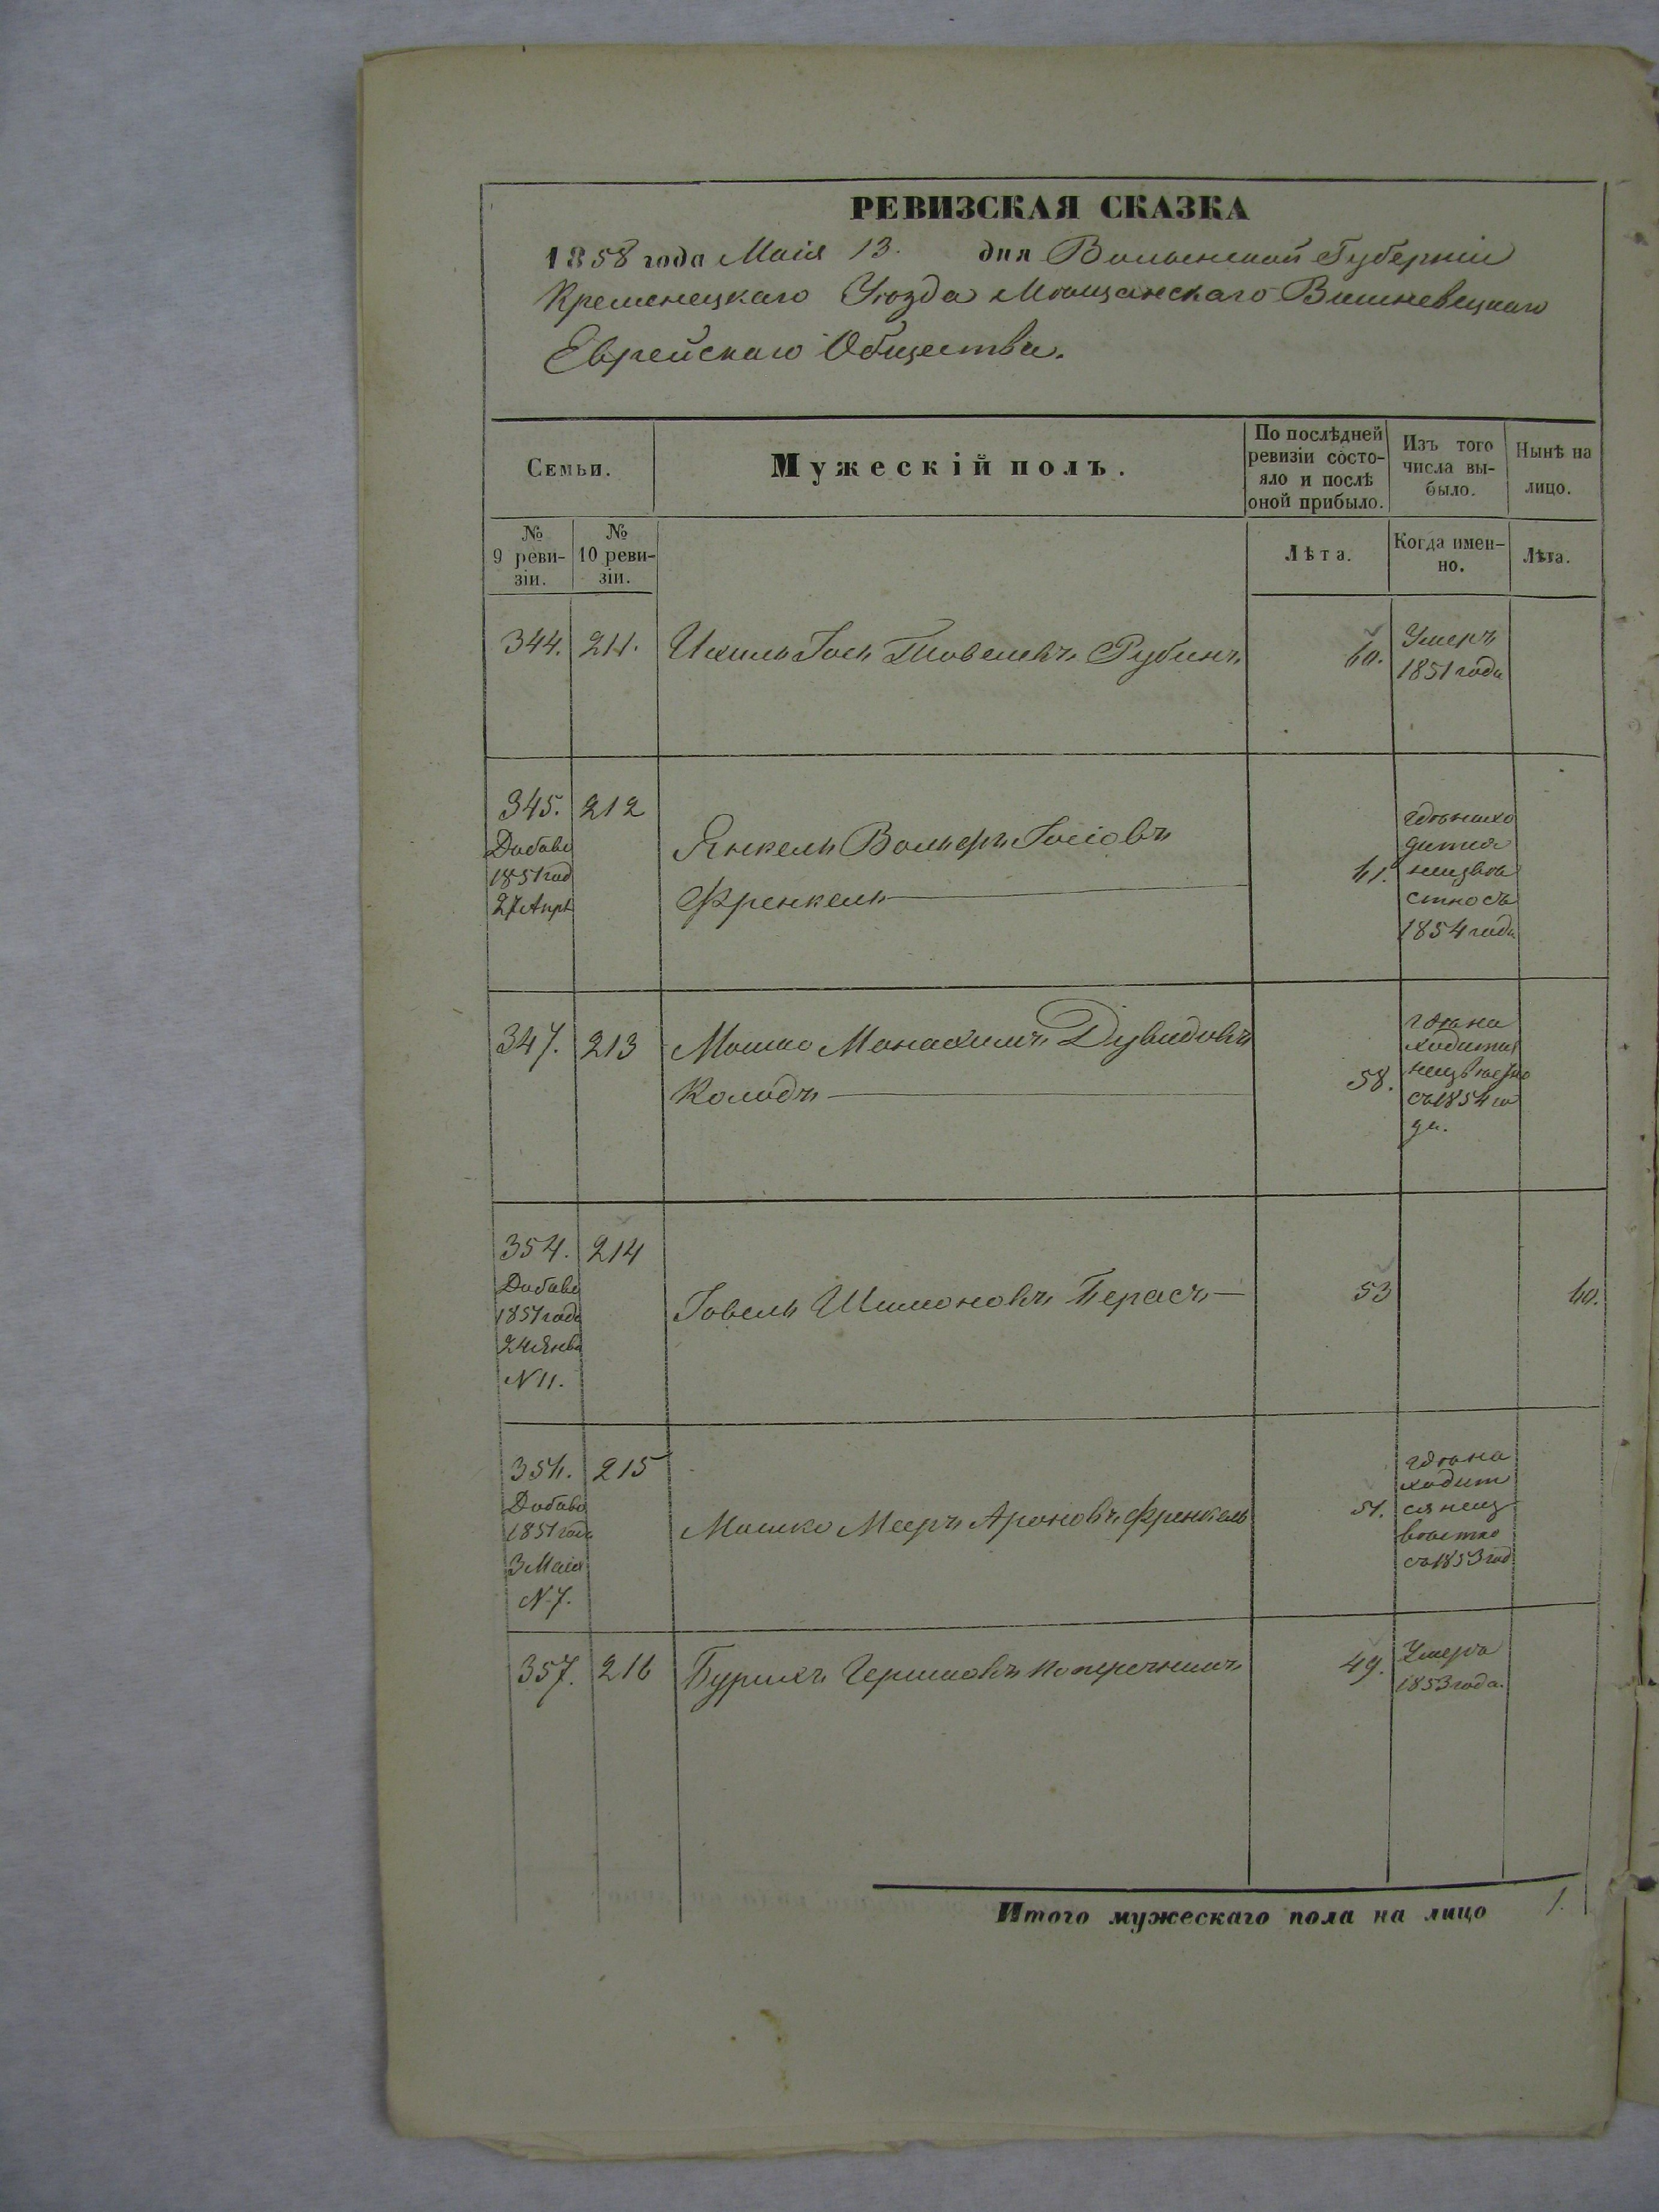 РЕВИЗСКАЯ СКАЗКА
1858 года Маія 13. дня Волынской Губерніи
Кременецкаго Уѣзда Мѣщанскаго Вишневецкаго
Еврейскаго Общества.
Семьи.
Мужескій полъ.
По послѣдней
ревизіи состо-
яло и послѣ
оной прибыло.
Изъ того
числа вы-
было.
Нынѣ на
лицо.
№
9 реви-
зіи.
№
10 реви-
зіи.
Лѣта.
Когда имен-
но.
Лѣта.
344. 211. Ихиль Іось Товелевъ Рубинъ 60.
Умеръ
1851 года
345. 212
Добаво
1851 год
27 Апрѣ
Янкель Вольфъ Іосіовъ
Френкель 61.
гдѣ нахо
дится
неизвѣ
стно съ
1854 года
347. 213 Мошко Монахимъ Дувидовъ
Колодъ 58.
гдѣ на
ходится
неизвѣстно
съ 1854 го
да.
354. 214
Добаво
1851 года
24 Янва
N 11.
Говель Шимоновъ Перасъ 53 60.
356. 215
Добаво
1851 года
3 Маія
N 7.
Мошко Мееръ Ароновъ Френкель 51.
гдѣ на
ходит
ся неиз
вѣстно
съ 1853 год
357. 216 Бурихъ Гершковъ 49.
Умеръ
1853 года.
Итого мужескаго пола на лицо 1.